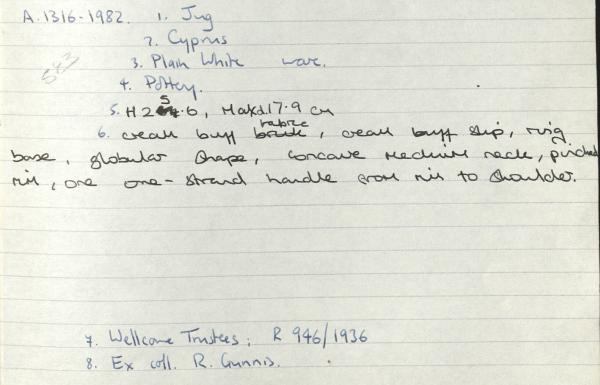 A.1316-1982. 1. Jug
2. Cyprus
583
3. Plain White ware.
4. Pottery.
5. H 25.6, Maxd.17.9 cm
6. cream buff fabric, cream buff slip, ring
base, globular shape, concave medium neck, pinched
rim, one one-strand handle from rim to shoulder.
7. Wellcome Trustees; R 946/1936
8. Ex coll. R. Gunnis.